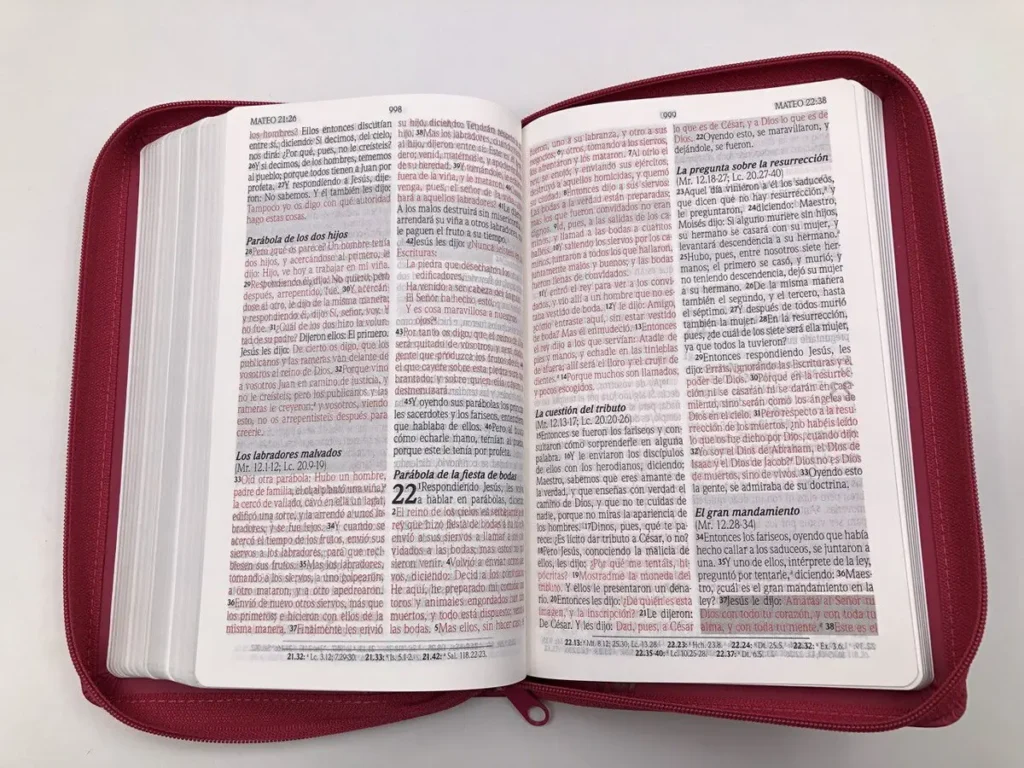 MATEO 21:26
998
los hombres? Ellos entonces discutían
entre sí, diciendo: Si decimos, del cielo,
nos dirá: ¿Por qué, pues, no le creísteis?
26Y si decimos, de los hombres, tememos
al pueblo; porque todos tienen a Juan por
profeta. 27Y respondiendo a Jesús, dije-
ron: No sabemos. Y él también les dijo:
Tampoco yo os digo con qué autoridad
hago estas cosas.
Parábola de los dos hijos
28Pero ¿qué os parece? Un hombre tenía
dos hijos, y acercándose al primero, le
dijo: Hijo, ve hoy a trabajar en mi viña.
29Respondiendo él, dijo: No quiero; pero
después, arrepentido, fue. 30Y acercán-
dose al otro, le dijo de la misma manera;
y respondiendo él, dijo: Sí, señor, voy. Y
no fue. 31¿Cuál de los dos hizo la volun-
tad de su padre? Dijeron ellos: El primero.
Jesús les dijo: De cierto os digo, que los
publicanos y las rameras van delante de
vosotros al reino de Dios. 32Porque vino
a vosotros Juan en camino de justicia, y
no le creísteis; pero los publicanos y las
rameras le creyeron; y vosotros, viendo
esto, no os arrepentisteis después para
creerle.
Los labradores malvados
(Mr. 12.1-12; Lc. 20.9-19)
33Oíd otra parábola: Hubo un hombre,
padre de familia, el cual plantó una viña,
la cercó de vallado, cavó en ella un lagar,
edificó una torre, y la arrendó a unos la-
bradores, y se fue lejos. 34Y cuando se
acercó el tiempo de los frutos, envió sus
siervos a los labradores, para que reci-
biesen sus frutos. 35Mas los labradores,
tomando a los siervos, a uno golpearon,
a otro mataron, y a otro apedrearon.
36Envió de nuevo otros siervos, más que
los primeros; e hicieron con ellos de la
misma manera. 37Finalmente les envió
su hijo, diciendo: Tendrán respeto
hijo. 38Mas los labradores, cuando
hijo, dijeron entre sí: Este es el
dero; venid, matémosle, y apoderé
de su heredad. 39Y tomándole, le
fuera de la viña, y le mataron. 40
venga, pues, el señor de la
hará a aquellos labradores? 41
A los malos destruirá sin miseri
arrendará su viña a otros labradores,
le paguen el fruto a su tiempo.
42Jesús les dijo: ¿Nunca leísteis en
Escrituras:
La piedra que desecharon los
edificadores,
Ha venido a ser cabeza del ángulo.
El Señor ha hecho esto,
Y es cosa maravillosa a nuestros
ojos?
43Por tanto os digo, que el reino de
será quitado de vosotros, y será dado
gente que produzca los frutos de él.
el que cayere sobre esta piedra será
brantado; y sobre quien ella cayere
desmenuzará.
45Y oyendo sus parábolas los prin
les sacerdotes y los fariseos, entendieron
que hablaba de ellos. 46Pero al
cómo echarle mano, temían al
porque este le tenía por profeta.
Parábola de la fiesta de bodas
22 1Respondiendo Jesús, les
a hablar en parábolas, dicien
2El reino de los cielos es semejante
rey que hizo fiesta de bodas a su
envió a sus siervos a llamar a los
vidados a las bodas; mas estos no
sieron venir. 4Volvió a enviar otros
vos, diciendo: Decid a los convidados
He aquí, he preparado mi comida;
toros y animales engordados han
muertos, y todo está dispuesto; venid
las bodas. 5Mas ellos, sin hacer caso,
21.32: Lc. 3.12; 7.29-30. 21.33: Is. 5.1-2. 21.42: Sal. 118.22-23.
999
MATEO 22:38
uno a su labranza, y otro a sus
otros, tomando a los siervos,
y los mataron. 7Al oírlo el
y enviando sus ejércitos,
a aquellos homicidas, y quemó
8Entonces dijo a sus siervos:
Las bodas a la verdad están preparadas;
los que fueron convidados no eran
9Id, pues, a las salidas de los ca-
y llamad a las bodas a cuantos
10Y saliendo los siervos por los ca-
juntaron a todos los que hallaron,
juntamente malos y buenos; y las bodas
fueron llenas de convidados.
11Y entró el rey para ver a los convi-
dados, y vio allí a un hombre que no es-
taba vestido de boda. 12Y le dijo: Amigo,
¿cómo entraste aquí, sin estar vestido
de boda? Mas él enmudeció. 13Entonces
el rey dijo a los que servían: Atadle de
pies y manos, y echadle en las tinieblas
de afuera; allí será el lloro y el crujir de
dientes. 14Porque muchos son llamados,
y pocos escogidos.
La cuestión del tributo
(Mr. 12.13-17; Lc. 20.20-26)
15Entonces se fueron los fariseos y con-
sultaron cómo sorprenderle en alguna
palabra. 16Y le enviaron los discípulos
de ellos con los herodianos, diciendo:
Maestro, sabemos que eres amante de
la verdad, y que enseñas con verdad el
camino de Dios, y que no te cuidas de
nadie, porque no miras la apariencia de
los hombres. 17Dinos, pues, qué te pa-
rece: ¿Es lícito dar tributo a César, o no?
18Pero Jesús, conociendo la malicia de
ellos, les dijo: ¿Por qué me tentáis, hi-
pócritas? 19Mostradme la moneda del
tributo. Y ellos le presentaron un dena-
rio. 20Entonces les dijo: ¿De quién es esta
imagen, y la inscripción? 21Le dijeron:
De César. Y les dijo: Dad, pues, a César
lo que es de César, y a Dios lo que es de
Dios. 22Oyendo esto, se maravillaron, y
dejándole, se fueron.
La pregunta sobre la resurrección
(Mr. 12.18-27; Lc. 20.27-40)
23Aquel día vinieron a él los saduceos,
que dicen que no hay resurrección, y
le preguntaron, 24diciendo: Maestro,
Moisés dijo: Si alguno muriere sin hijos,
su hermano se casará con su mujer, y
levantará descendencia a su hermano.
25Hubo, pues, entre nosotros siete her-
manos; el primero se casó, y murió; y
no teniendo descendencia, dejó su mujer
a su hermano. 26De la misma manera
también el segundo, y el tercero, hasta
el séptimo. 27Y después de todos murió
también la mujer. 28En la resurrección,
pues, ¿de cuál de los siete será ella mujer,
ya que todos la tuvieron?
29Entonces respondiendo Jesús, les
dijo: Erráis, ignorando las Escrituras y el
poder de Dios. 30Porque en la resurrec-
ción ni se casarán ni se darán en casa-
miento, sino serán como los ángeles de
Dios en el cielo. 31Pero respecto a la resu-
rrección de los muertos, ¿no habéis leído
lo que os fue dicho por Dios, cuando dijo:
32Yo soy el Dios de Abraham, el Dios de
Isaac y el Dios de Jacob? Dios no es Dios
de muertos, sino de vivos. 33Oyendo esto
la gente, se admiraba de su doctrina.
El gran mandamiento
(Mr. 12.28-34)
34Entonces los fariseos, oyendo que había
hecho callar a los saduceos, se juntaron a
una. 35Y uno de ellos, intérprete de la ley,
preguntó por tentarle, diciendo: 36Maes-
tro, ¿cuál es el gran mandamiento en la
ley? 37Jesús le dijo: Amarás al Señor tu
Dios con todo tu corazón, y con toda tu
alma, y con toda tu mente. 38Este es el
22.13: Mt. 8.12; 25.30; Lc. 13.28. 22.23: Hch. 23.8. 22.24: Dt. 25.5. 22.32: Ex. 3.6.
22.35-40: Lc. 10.25-28. 22.37: Dt. 6.5.